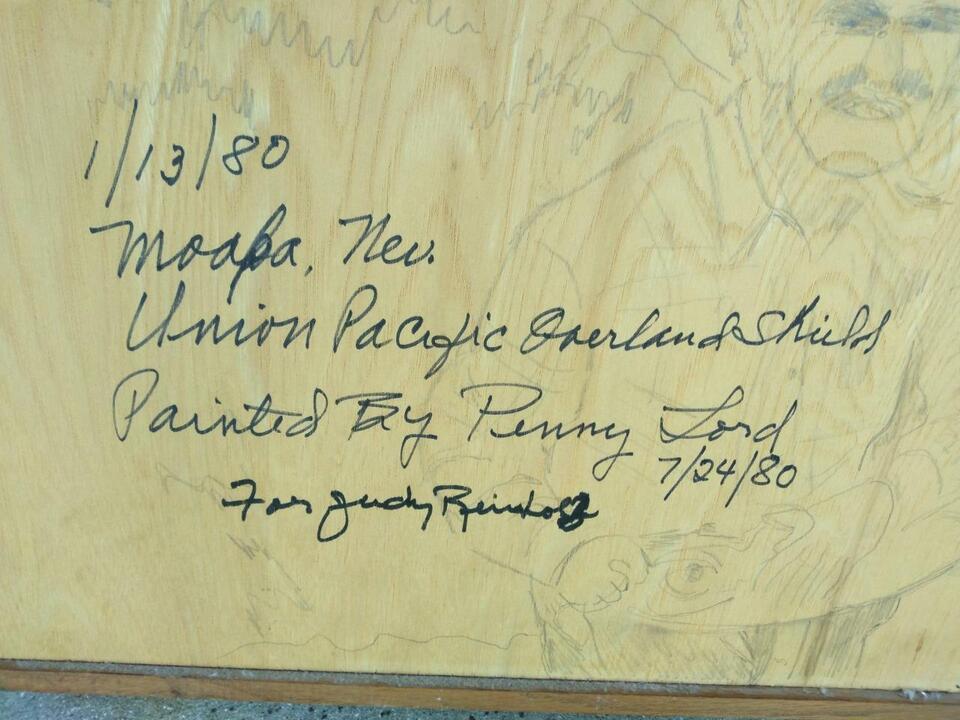 1/13/80
Moapa, Nev.
Union Pacific Overland Shield
Painted By Penny Lord
7/24/80
For Judy